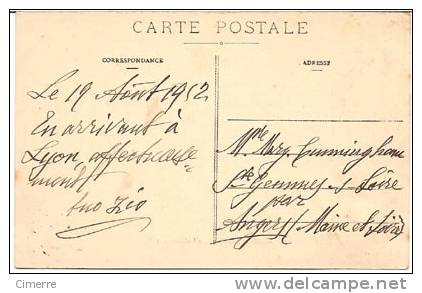 CARTE POSTALE
CORRESPONDANCE
ADRESSE
Le 19 Août 1912
En arrivant à
Lyon, affectueuse=
ment
Mlle Mary Cunningham
Ste Gemmes s/ Loire
par
Angers (Maine et Loire)
Cimerre
delcampe.net